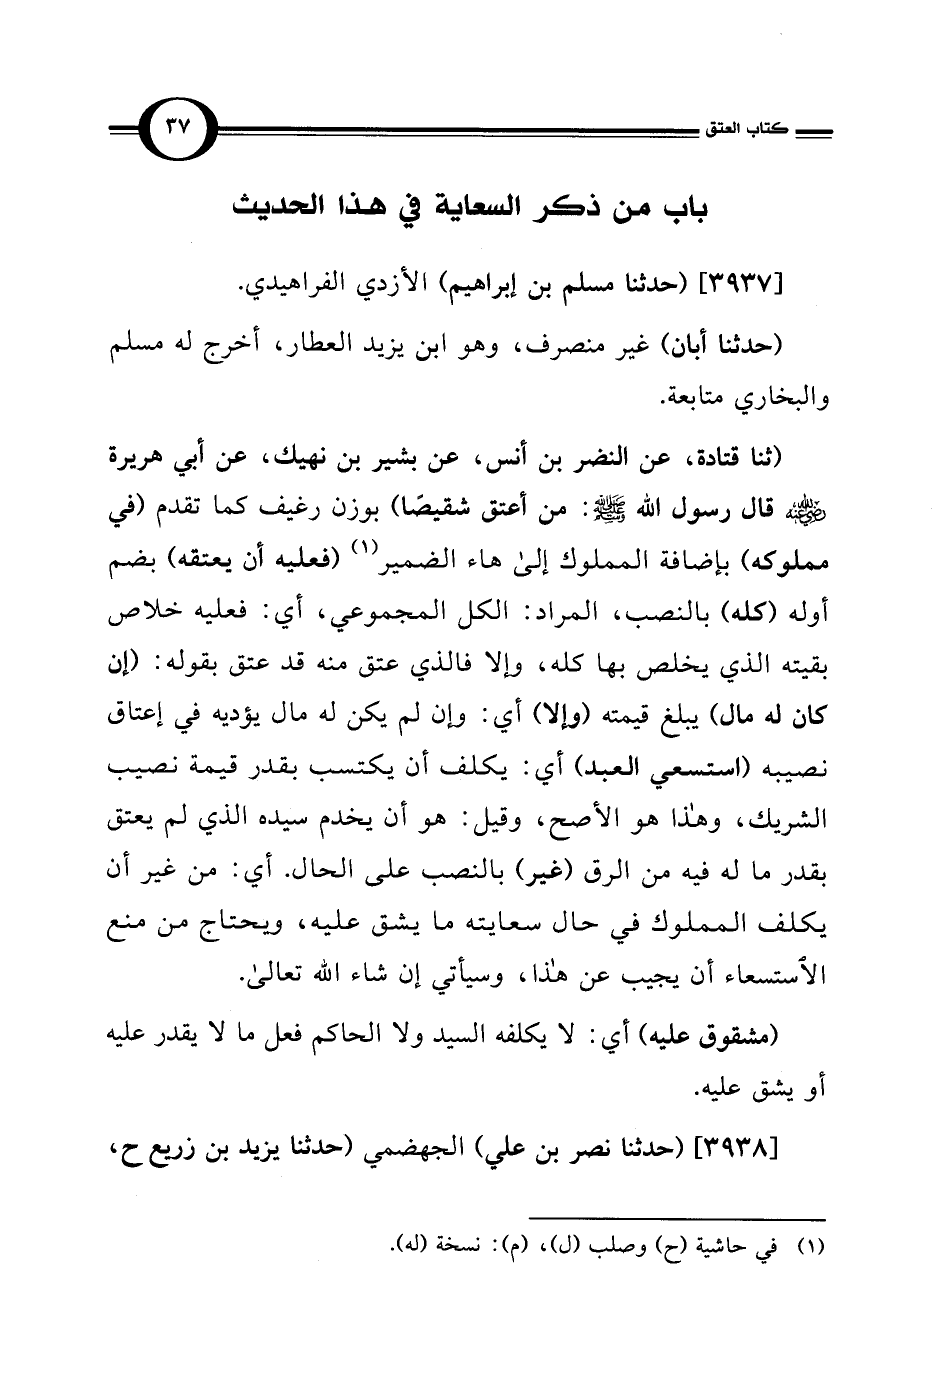 كتاب العتق ٣٧
باب من ذكر السعاية في هذا الحديث
[٣٩٣٧] (حدثنا مسلم بن إبراهيم) الأزدي الفراهيدي.
(حدثنا أبان) غير منصرف، وهو ابن يزيد العطار، أخرج له مسلم
والبخاري متابعة.
(ثنا قتادة، عن النضر بن أنس، عن بشير بن نهيك، عن أبي هريرة
رضي الله عنه قال رسول الله ﷺ: من أعتق شقيصًا) بوزن رغيف كما تقدم (في
مملوكه) بإضافة المملوك إلىٰ هاء الضمير(١) (فعليه أن يعتقه) بضم
أوله (كله) بالنصب، المراد: الكل المجموعي، أي: فعليه خلاص
بقيته الذي يخلص بها كله، وإلا فالذي عتق منه قد عتق بقوله: (إن
كان له مال) يبلغ قيمته (وإلا) أي: وإن لم يكن له مال يؤديه في إعتاق
نصيبه (استسعي العبد) أي: يكلف أن يكتسب بقدر قيمة نصيب
الشريك، وهٰذا هو الأصح، وقيل: هو أن يخدم سيده الذي لم يعتق
بقدر ما له فيه من الرق (غير) بالنصب على الحال. أي: من غير أن
يكلف المملوك في حال سعايته ما يشق عليه، ويحتاج من منع
الٱستسعاء أن يجيب عن هٰذا، وسيأتي إن شاء الله تعالىٰ.
(مشقوق عليه) أي: لا يكلفه السيد ولا الحاكم فعل ما لا يقدر عليه
أو يشق عليه.
[٣٩٣٨] (حدثنا نصر بن علي) الجهضمي (حدثنا يزيد بن زريع ح،
(١) في حاشية (ح) وصلب (ل)، (م): نسخة (له).